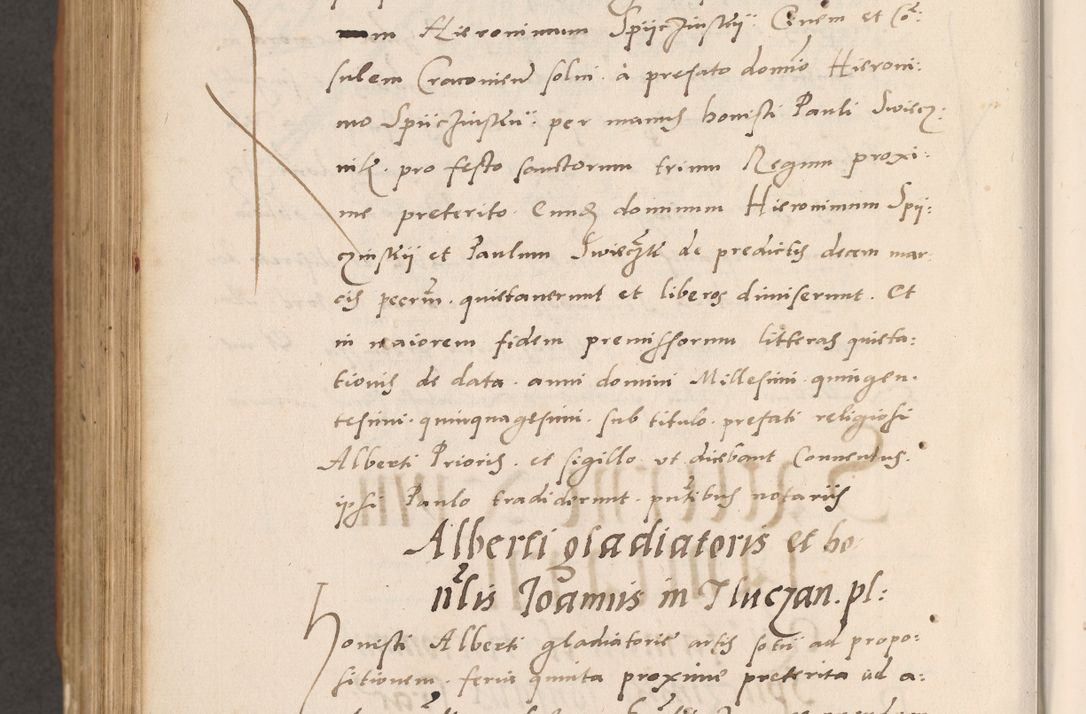 m Hieronimum Spiiczinskii Civem et Co:
sulem Cracovien solvi. a prefato domno Hieroni:
mo Spiiczinskii. per manus honesti Pauli Swiecz:
nik. pro festo sanctorum trium Regum proxi:
me preterito. Eund dominum Hieronimum Spij:
czinskii et Paulum de predictis decem mar
cis quietaverunt et liberos dimiserunt. Et
in maiorem fidem premissorum litteras quieta:
tionis de data. anni domini Millesimi. quingen.
tesimi. quinquagesimi. sub titulo. prefati religiosi
Alberti Prioris. et sigillo. ut dicebant Conventus.
ipsi Paulo tradiderunt. pntibus notariis
Alberti gladiatoris et ho
nlis Joannis in Tluczan. pl:
Honesti Alberti gladiatorie artis sotii ad propo:
sitionem. feria quinta proxime preterita ad a: